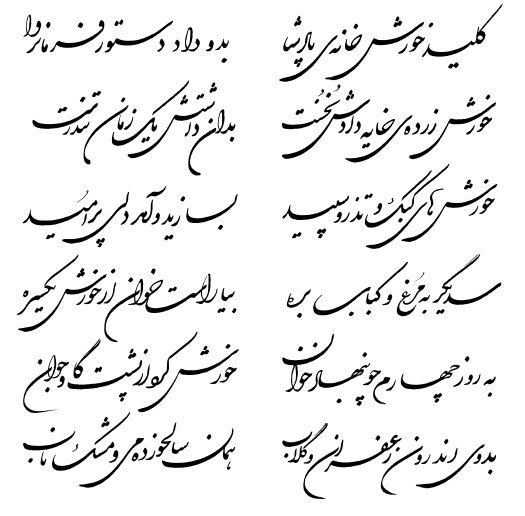 کلید خورش خانه‌ی پادشا
بدو داد دستور فرمانروا
خورش زرده‌ی خایه دادش نخست
بدان داشتش یک زمان تندرست
خورش‌های کبک و تذرو سپید
بسازید و آمد دلی پر امید
سدیگر به مرغ و کباب بره
بیاراست خوان از خورش یکسره
به روز چهارم چو بنهاد خوان
خورش کرد از پشت گاو جوان
بدوی اندرون زعفران و گلاب
همان سالخورده می و مشک ناب